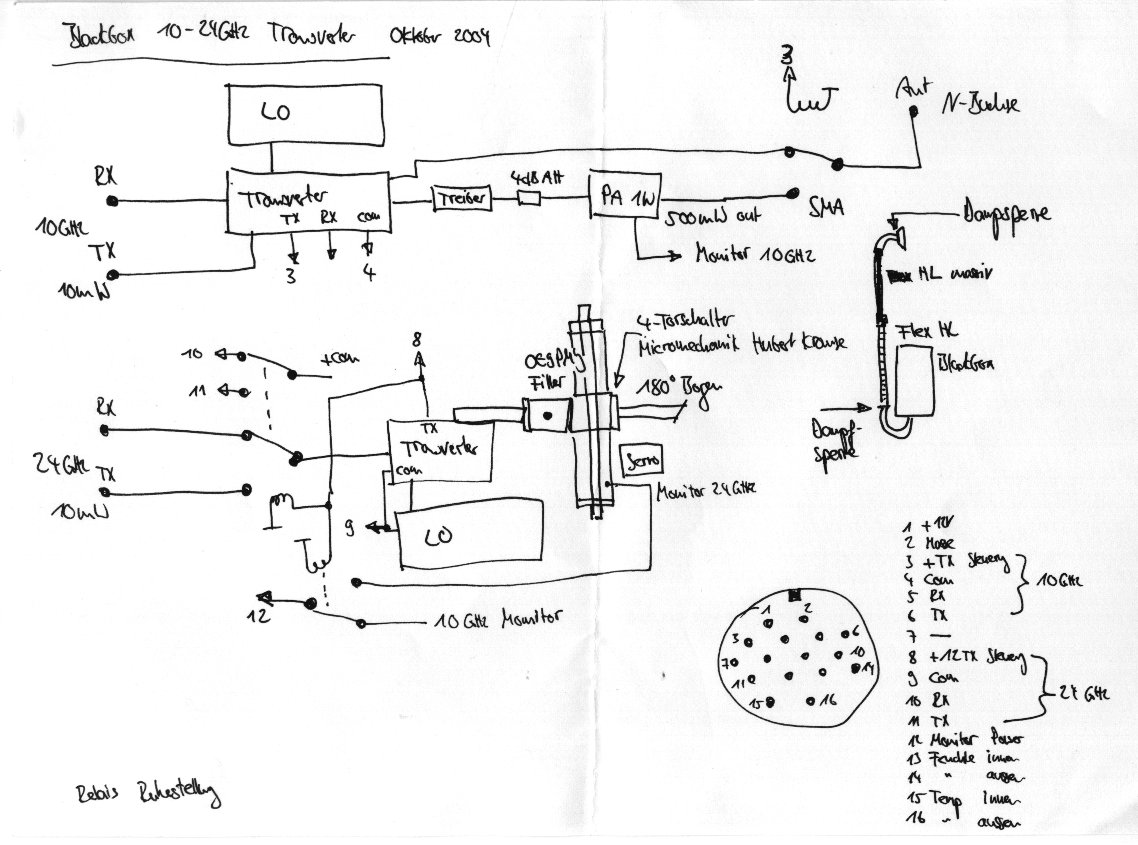 Blackbox 10-24GHz Transverter Oktober 2004
LO
3
Ant
N-Buchse
RX
10GHz
TX
10mW
Transverter
TX RX com
3
4
Treiber
4dB Att
PA 1W
500mW out
SMA
Monitor 10GHz
Dampfsperre
HL massiv
Flex HL
Blackbox
Dampf-
sperre
4-Torschalter
Micromechanik Hubert Krause
180° Bogen
Filter
Servo
Monitor 24GHz
10
11
+com
8
RX
24GHz
TX
10mW
TX
Transverter
com
9
LO
12
10GHz Monitor
1
2
3
6
7
10
11
14
15
16
1 +12V
2 Masse
3 +TX Steuerung
4 Com
5 RX
6 TX
10GHz
7 —
8 +12TX Steuerung
9 Com
10 RX
11 TX
24GHz
12 Monitor Power
13 Feuchte innen
14 " aussen
15 Temp innen
16 " aussen
Relais Ruhestellung